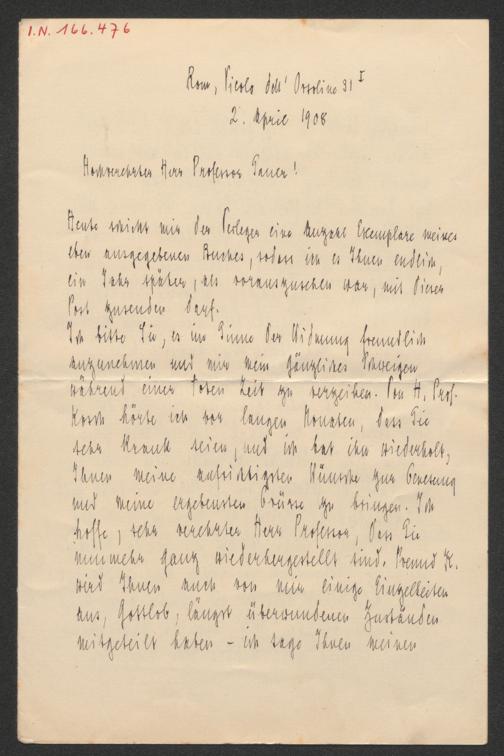 I.N. 166.476
Rom, Vicolo dell' Orsolino 31 I
2. April 1908
Hochverehrter Herr Professor Sauer!
Heute schickt mir der Verleger eine Anzahl Exemplare meines
eben ausgegebenen Buches, sodass ich es Ihnen endlich,
ein Jahr später, als vorauszusehen war, mit dieser
Post zusenden darf.
Ich bitte Sie, es im Sinne der Widmung freundlich
anzunehmen und mir mein gänzliches Schweigen
während einer toten Zeit zu verzeihen. Von H. Prof.
Kosch hörte ich vor langen Monaten, dass Sie
sehr krank seien, und ich bat ihn wiederholt,
Ihnen meine aufrichtigsten Wünsche zur Genesung
und meine ergebensten Grüsse zu bringen. Ich
hoffe, sehr verehrter Herr Professor, dass Sie
nunmehr ganz wiederhergestellt sind. Freund K.
wird Ihnen auch von mir einige Einzelheiten
aus, Gottlob, längst überwundenen Zuständen
mitgeteilt haben – ich sage Ihnen meinen